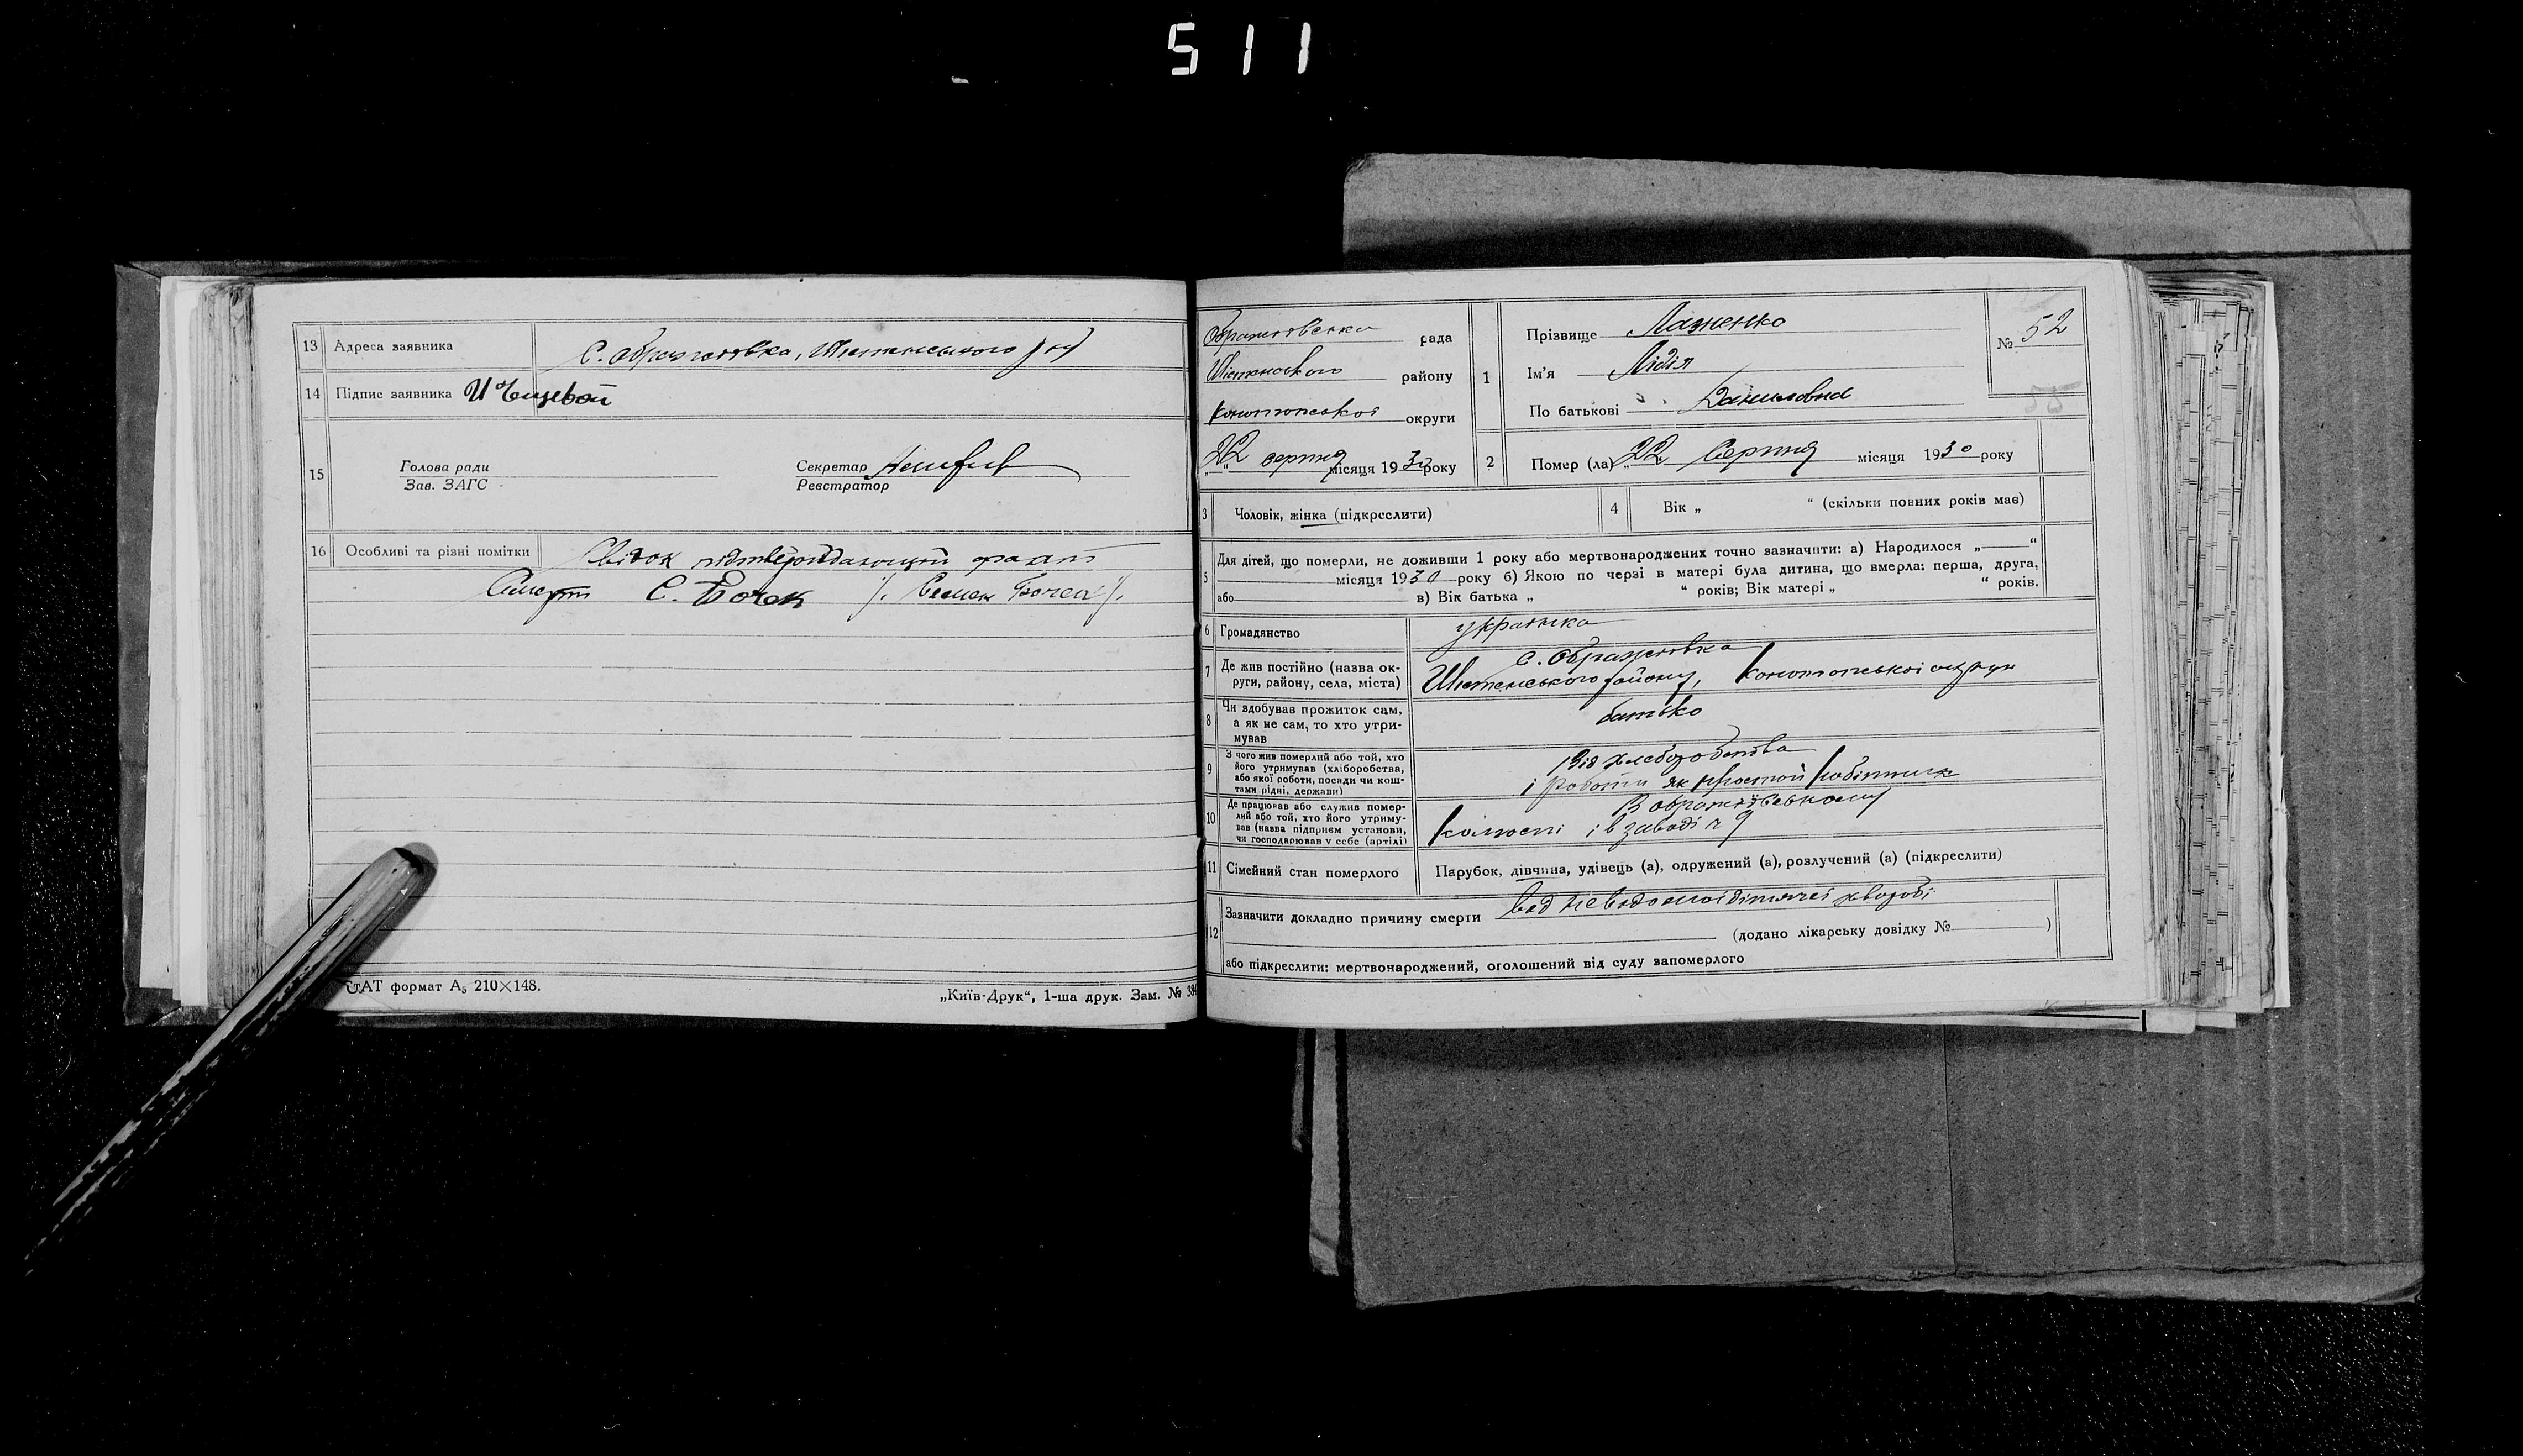 511
13 Адреса заявника С. Ображіївка,
14 Підпис заявника И
15 Голова ради
Зав. ЗАГС
Секретар
Реєстратор
16 Особливі та різні помітки Свідок підтверждающий факт
Смерти С. Бочек /. Семен Бочек /.
ТАТ формат А5 210×148.
„Київ-Друк“, 1-ша друк. Зам. № 384
рада
району
Конотопської округи
„22“ серпня місяця 1930 року
1
Прізвище
Ім'я Лідія
По батькові Даниловна
№ 52
2 Помер (ла) „22 Серпня місяця 1930 року
3 Чоловік, жінка (підкреслити)
4 Вік „ “ (скільки повних років має)
5 Для дітей, що померли, не доживши 1 року або мертвонароджених точно зазначити: а) Народилося „ “
місяця 1930 року б) Якою по черзі в матері була дитина, що вмерла: перша, друга,
або в) Вік батька „ “ років; Вік матері „ “ років.
6 Громадянство українка
7 Де жив постійно (назва ок-
руги, району, села, міста)
с. Ображіївка
району, Конотопської округи
8 Чи здобував прожиток сам,
а як не сам, то хто утри-
мував
батько
9 З чого жив померлий або той, хто
його утримував (хліборобства,
або якої роботи, посади чи кош-
тами рідні, держави)
Від хлеборобства
і роботи як простой робітник
10 Де працював або служив помер-
лий або той, хто його утриму-
вав (назва підприєм установи,
чи господарював у себе (артілі)
В
і в заводі
11 Сімейний стан померлого Парубок, дівчина, удівець (а), одружений (а), розлучений (а) (підкреслити)
12 Зазначити докладно причину смерти вад невідомої дитячої хвороби
(додано лікарську довідку № )
або підкреслити: мертвонароджений, оголошений від суду запомерлого